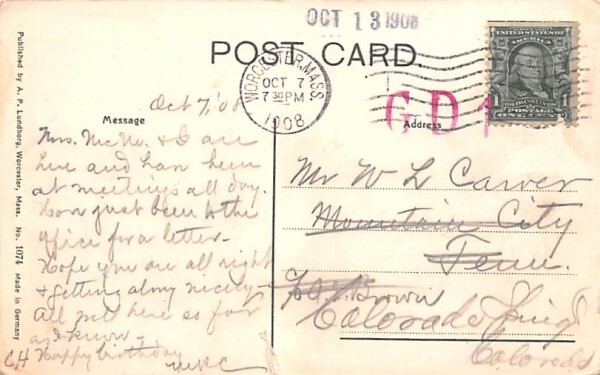 OCT 13 1908
POST CARD.
WORCESTER, MASS.
OCT 7
7 30 PM
1908
UNITED STATES OF
AMERICA
FRANKLIN
1 1
POSTAGE
ONE CENT
G D 1
Published by A. P. Lundborg, Worcester, Mass. No. 1074 Made in Germany
Message
Oct 7, '08
Mrs. & I are
here and have been
at meetings all day.
Have just been to the
office for a letter-
Hope you are all right
& getting along nicely-
All well here so far
as I know-
CH Happy birthday
WRC
Address
Mr W L Carver
Mountain City
Tenn.
Brown
Colorado Springs
Colorado